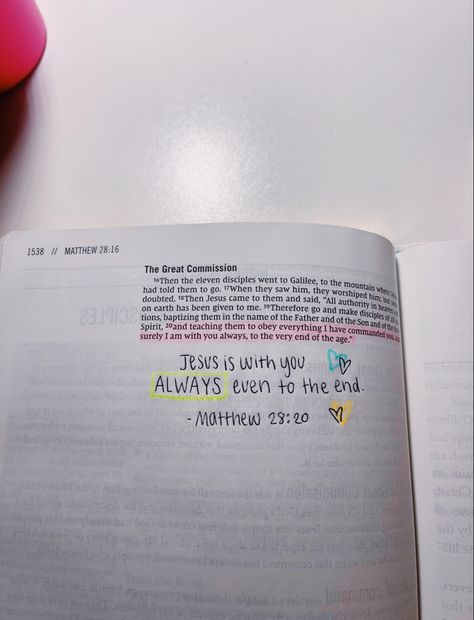 1538 // MATTHEW 28:16
The Great Commission
16Then the eleven disciples went to Galilee, to the mountain where
had told them to go. 17When they saw him, they worshiped him; but
doubted. 18Then Jesus came to them and said, "All authority in heaven
on earth has been given to me. 19Therefore go and make disciples of all
tions, baptizing them in the name of the Father and of the Son and of the
Spirit, 20and teaching them to obey everything I have commanded you.
surely I am with you always, to the very end of the age."
Jesus is with you
ALWAYS even to the end.
- Matthew 28:20